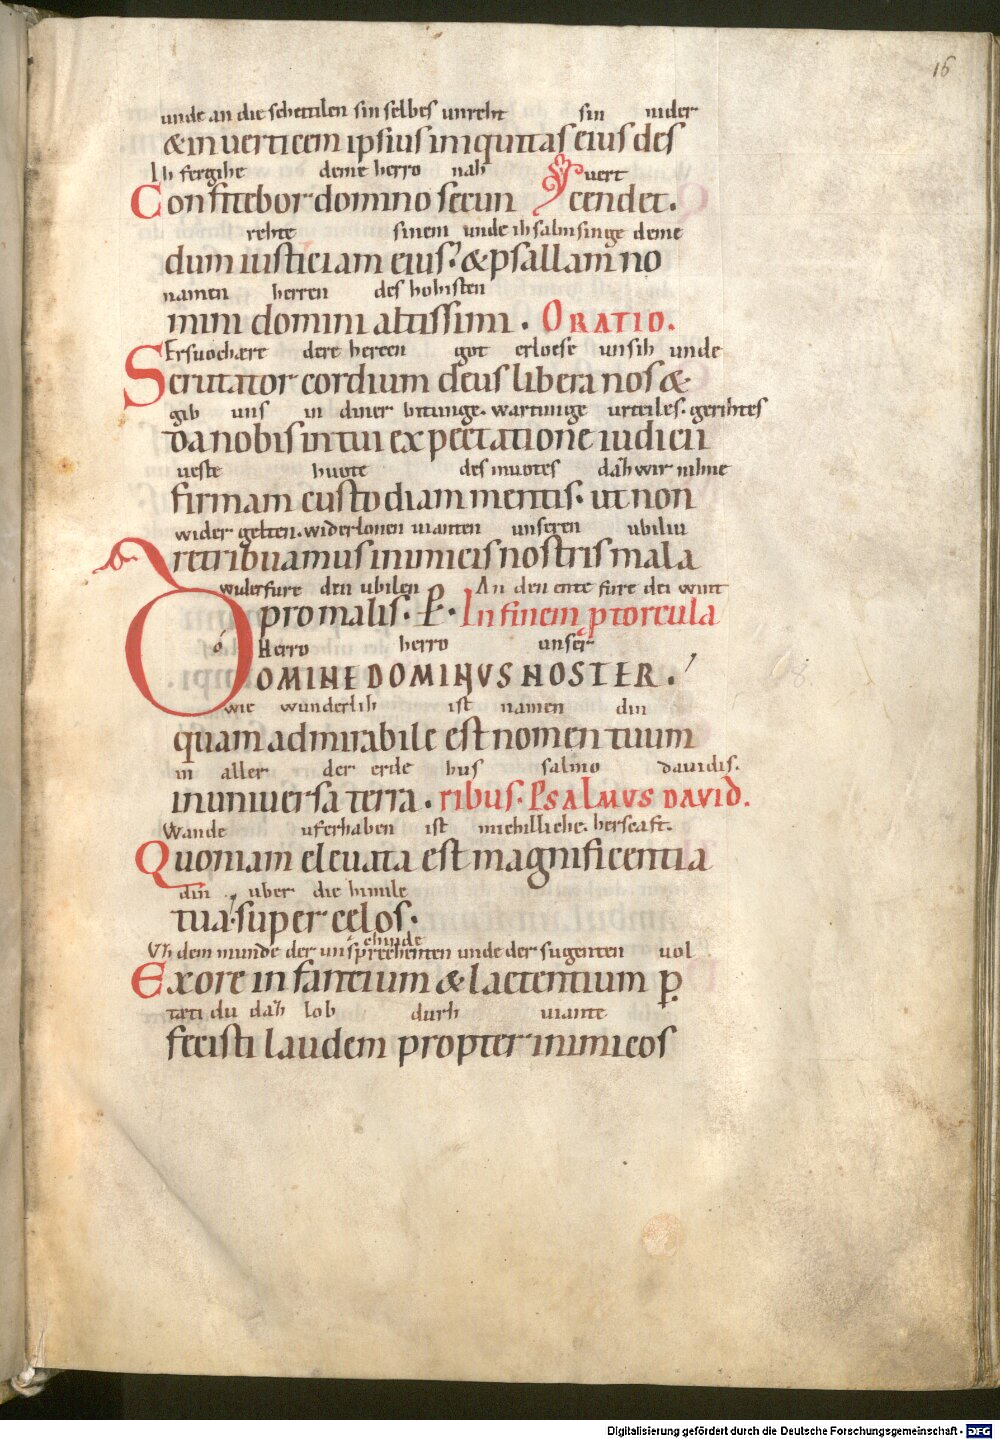 16
unde an die scheitilen sin selbes unreht sin nider
& in uerticem ipsius iniquitas eius des
Ih fergihe deme herro nah uert
Confitebor domino secun cendet.
rehte sinem unde ih salmsinge deme
dum iusticiam eius. & psallam no
namen herren des hohisten
mini domini altissimi. ORATIO.
Ersuochære dere hercen got erloese unsih unde
Scrutator cordium deus libera nos &
gib uns in diner bitunge. wartunge urteiles. gerihtes
da nobis in tui expectatione iudicii
ueste huote des muotes dah wir nihne
firmam custodiam mentis. ut non
wider gelten. widerlonen uianten unseren ubiliu
retribuamus inimicis nostris mala
widerfure den ubilen An den ente fure dei wint
pro malis. P. In finem p torcula
ó Herro herro unser
DOMINE DOMINUS NOSTER.
wie wunderlih ist namen din
quam admirabile est nomen tuum
in aller der erde hus salmo dauidis.
in uniuersa terra. ribus. PSALMUS DAVID.
Wande uferhaben ist michilliche. herscaft.
Quoniam eleuata est magnificentia
din uber die himile
tua. super celos.
chinde
Vh dem munde der unsprechenten unde der sugenten uol
Ex ore infantium & lactentium p
tati du dah lob durh uiante
fecisti laudem propter inimicos
Digitalisierung gefördert durch die Deutsche Forschungsgemeinschaft - DFG